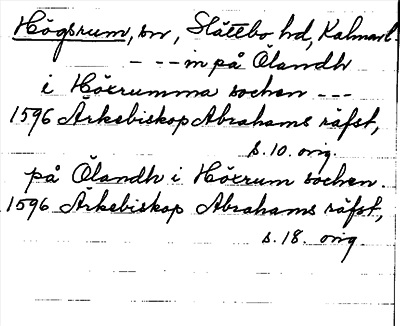 Högsrum, sn, Slättbo hd, Kalmar l.
- - - in på Ölandh
i Höxrumma sochen - - -
1596 Ärkebiskop Abrahams räfst,
s. 10. orig.
på Ölandh i Höxrum sochen.
1596 Ärkebiskop Abrahams räfst,
s. 18. orig.